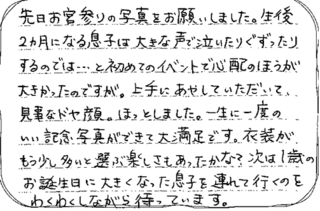 先日お宮参りの写真をお願いしました。生後
2カ月になる息子は大きな声で泣いたりぐずったり
するのでは…と初めてのイベントで心配のほうが
大きかったのですが。上手にあやしていただいて、
見事なドヤ顔。ほっとしました。一生に一度の
いい記念写真ができて大満足です。衣装が
もう少し多いと選ぶ楽しさもあったかな？次は1歳の
お誕生日に大きくなった息子を連れて行くのを
わくわくしながら待っています。